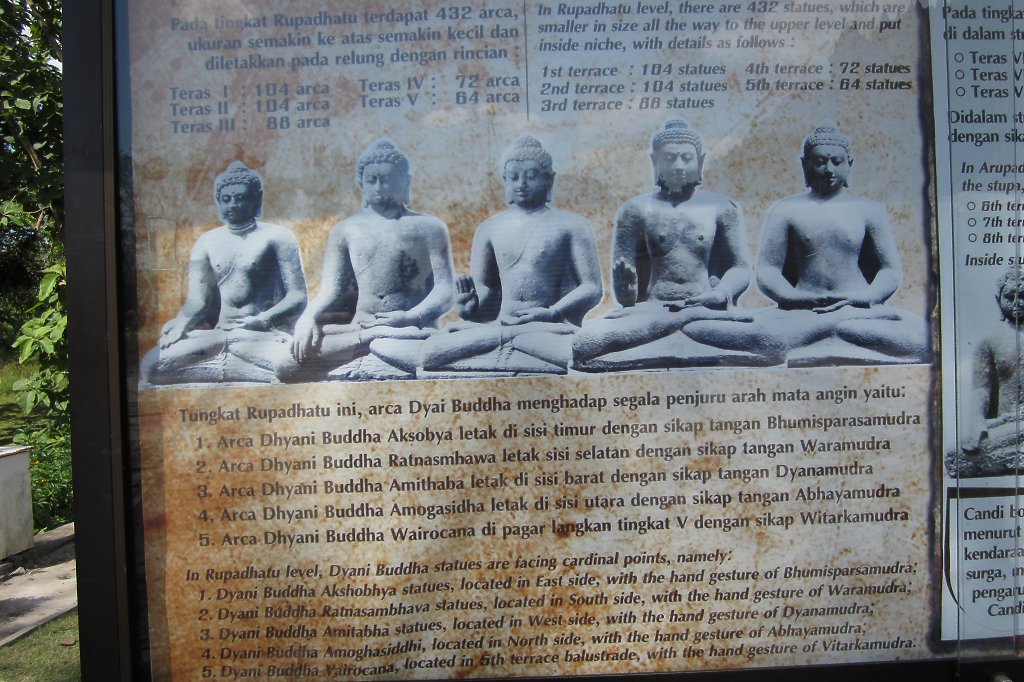 Pada tingkat Rupadhatu terdapat 432 arca,
ukuran semakin ke atas semakin kecil dan
diletakkan pada relung dengan rincian :
Teras I : 104 arca Teras IV : 72 arca
Teras II : 104 arca Teras V : 64 arca
Teras III : 88 arca
In Rupadhatu level, there are 432 statues, which are
smaller in size all the way to the upper level and put
inside niche, with details as follows :
1st terrace : 104 statues 4th terrace : 72 statues
2nd terrace : 104 statues 5th terrace : 64 statues
3rd terrace : 88 statues
Tungkat Rupadhatu ini, arca Dyai Buddha menghadap segala penjuru arah mata angin yaitu:
1. Arca Dhyani Buddha Aksobya letak di sisi timur dengan sikap tangan Bhumisparasamudra
2. Arca Dhyani Buddha Ratnasmhawa letak sisi selatan dengan sikap tangan Waramudra
3. Arca Dhyani Buddha Amithaba letak di sisi barat dengan sikap tangan Dyanamudra
4. Arca Dhyani Buddha Amogasidha letak di sisi utara dengan sikap tangan Abhayamudra
5. Arca Dhyani Buddha Wairocana di pagar langkan tingkat V dengan sikap Witarkamudra
In Rupadhatu level, Dyani Buddha statues are facing cardinal points, namely:
1. Dyani Buddha Akshobhya statues, located in East side, with the hand gesture of Bhumisparsamudra;
2. Dyani Buddha Ratnasambhava statues, located in South side, with the hand gesture of Waramudra;
3. Dyani Buddha Amitabha statues, located in West side, with the hand gesture of Dyanamudra;
4. Dyani Buddha Amoghasiddhi, located in North side, with the hand gesture of Abhayamudra;
5. Dyani Buddha Vairocana, located in 5th terrace balustrade, with the hand gesture of Vitarkamudra.
Pada tingka
di dalam st
Teras VI
Teras V
Teras V
Didalam st
dengan sika
In Arupad
the stupa,
6th ter
7th ter
8th ter
Inside s
Candi bo
menurut
kendaraa
surga, m
pengaru
Candi